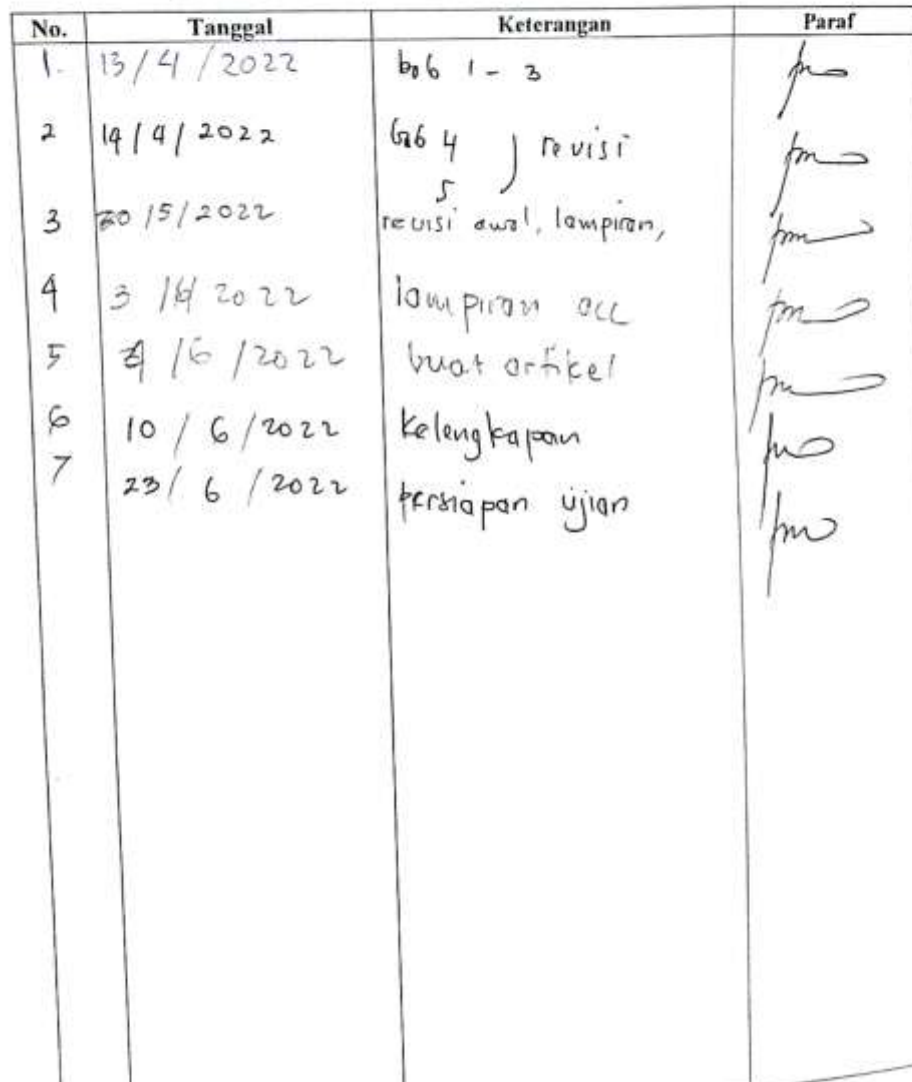 No. Tanggal Keterangan Paraf
1. 13/4/2022 bab 1 - 3
2 19/4/2022 bab 4 ) revisi
5
3 20/5/2022 revisi awal, lampiran,
4 3/6/2022 lampiran acc
5 4/6/2022 buat artikel
6 10/6/2022 Kelengkapan
7 23/6/2022 persiapan ujian